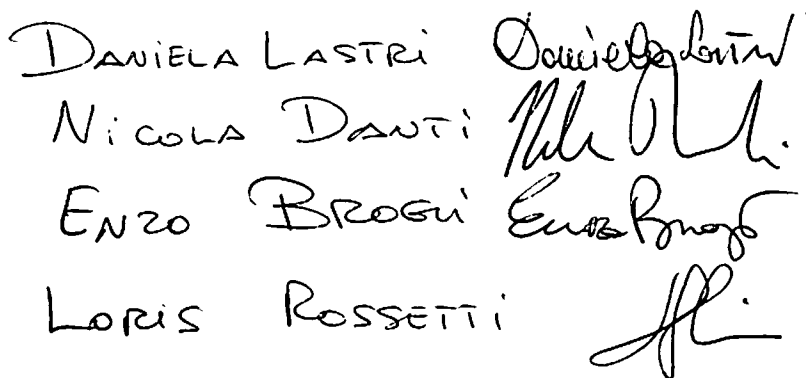 DANIELA LASTRI Daniela Lastri
NICOLA DANTI
ENZO BROGLI Enzo Brogli
LORIS ROSSETTI